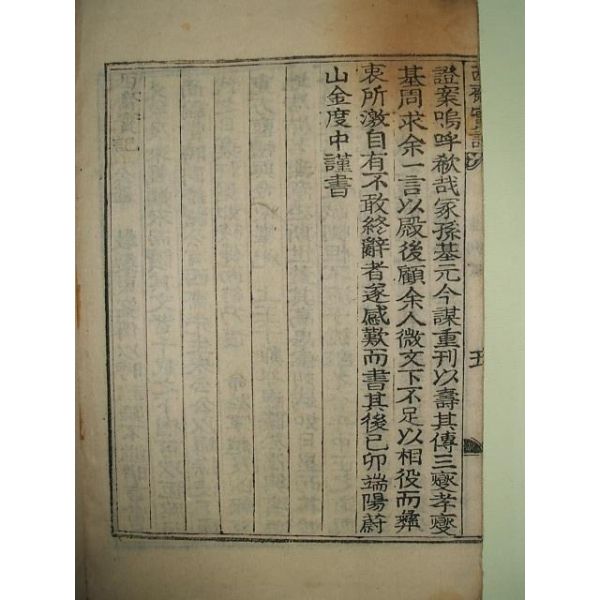 證案嗚呼欷哉冢孫基元今謀重刊以壽其傳三燮孝燮
基周求余一言以殿後顧余人微文下不足以相役而彝
衷所激自有不敢終辭者遂感歎而書其後己卯端陽蔚
山金度中謹書